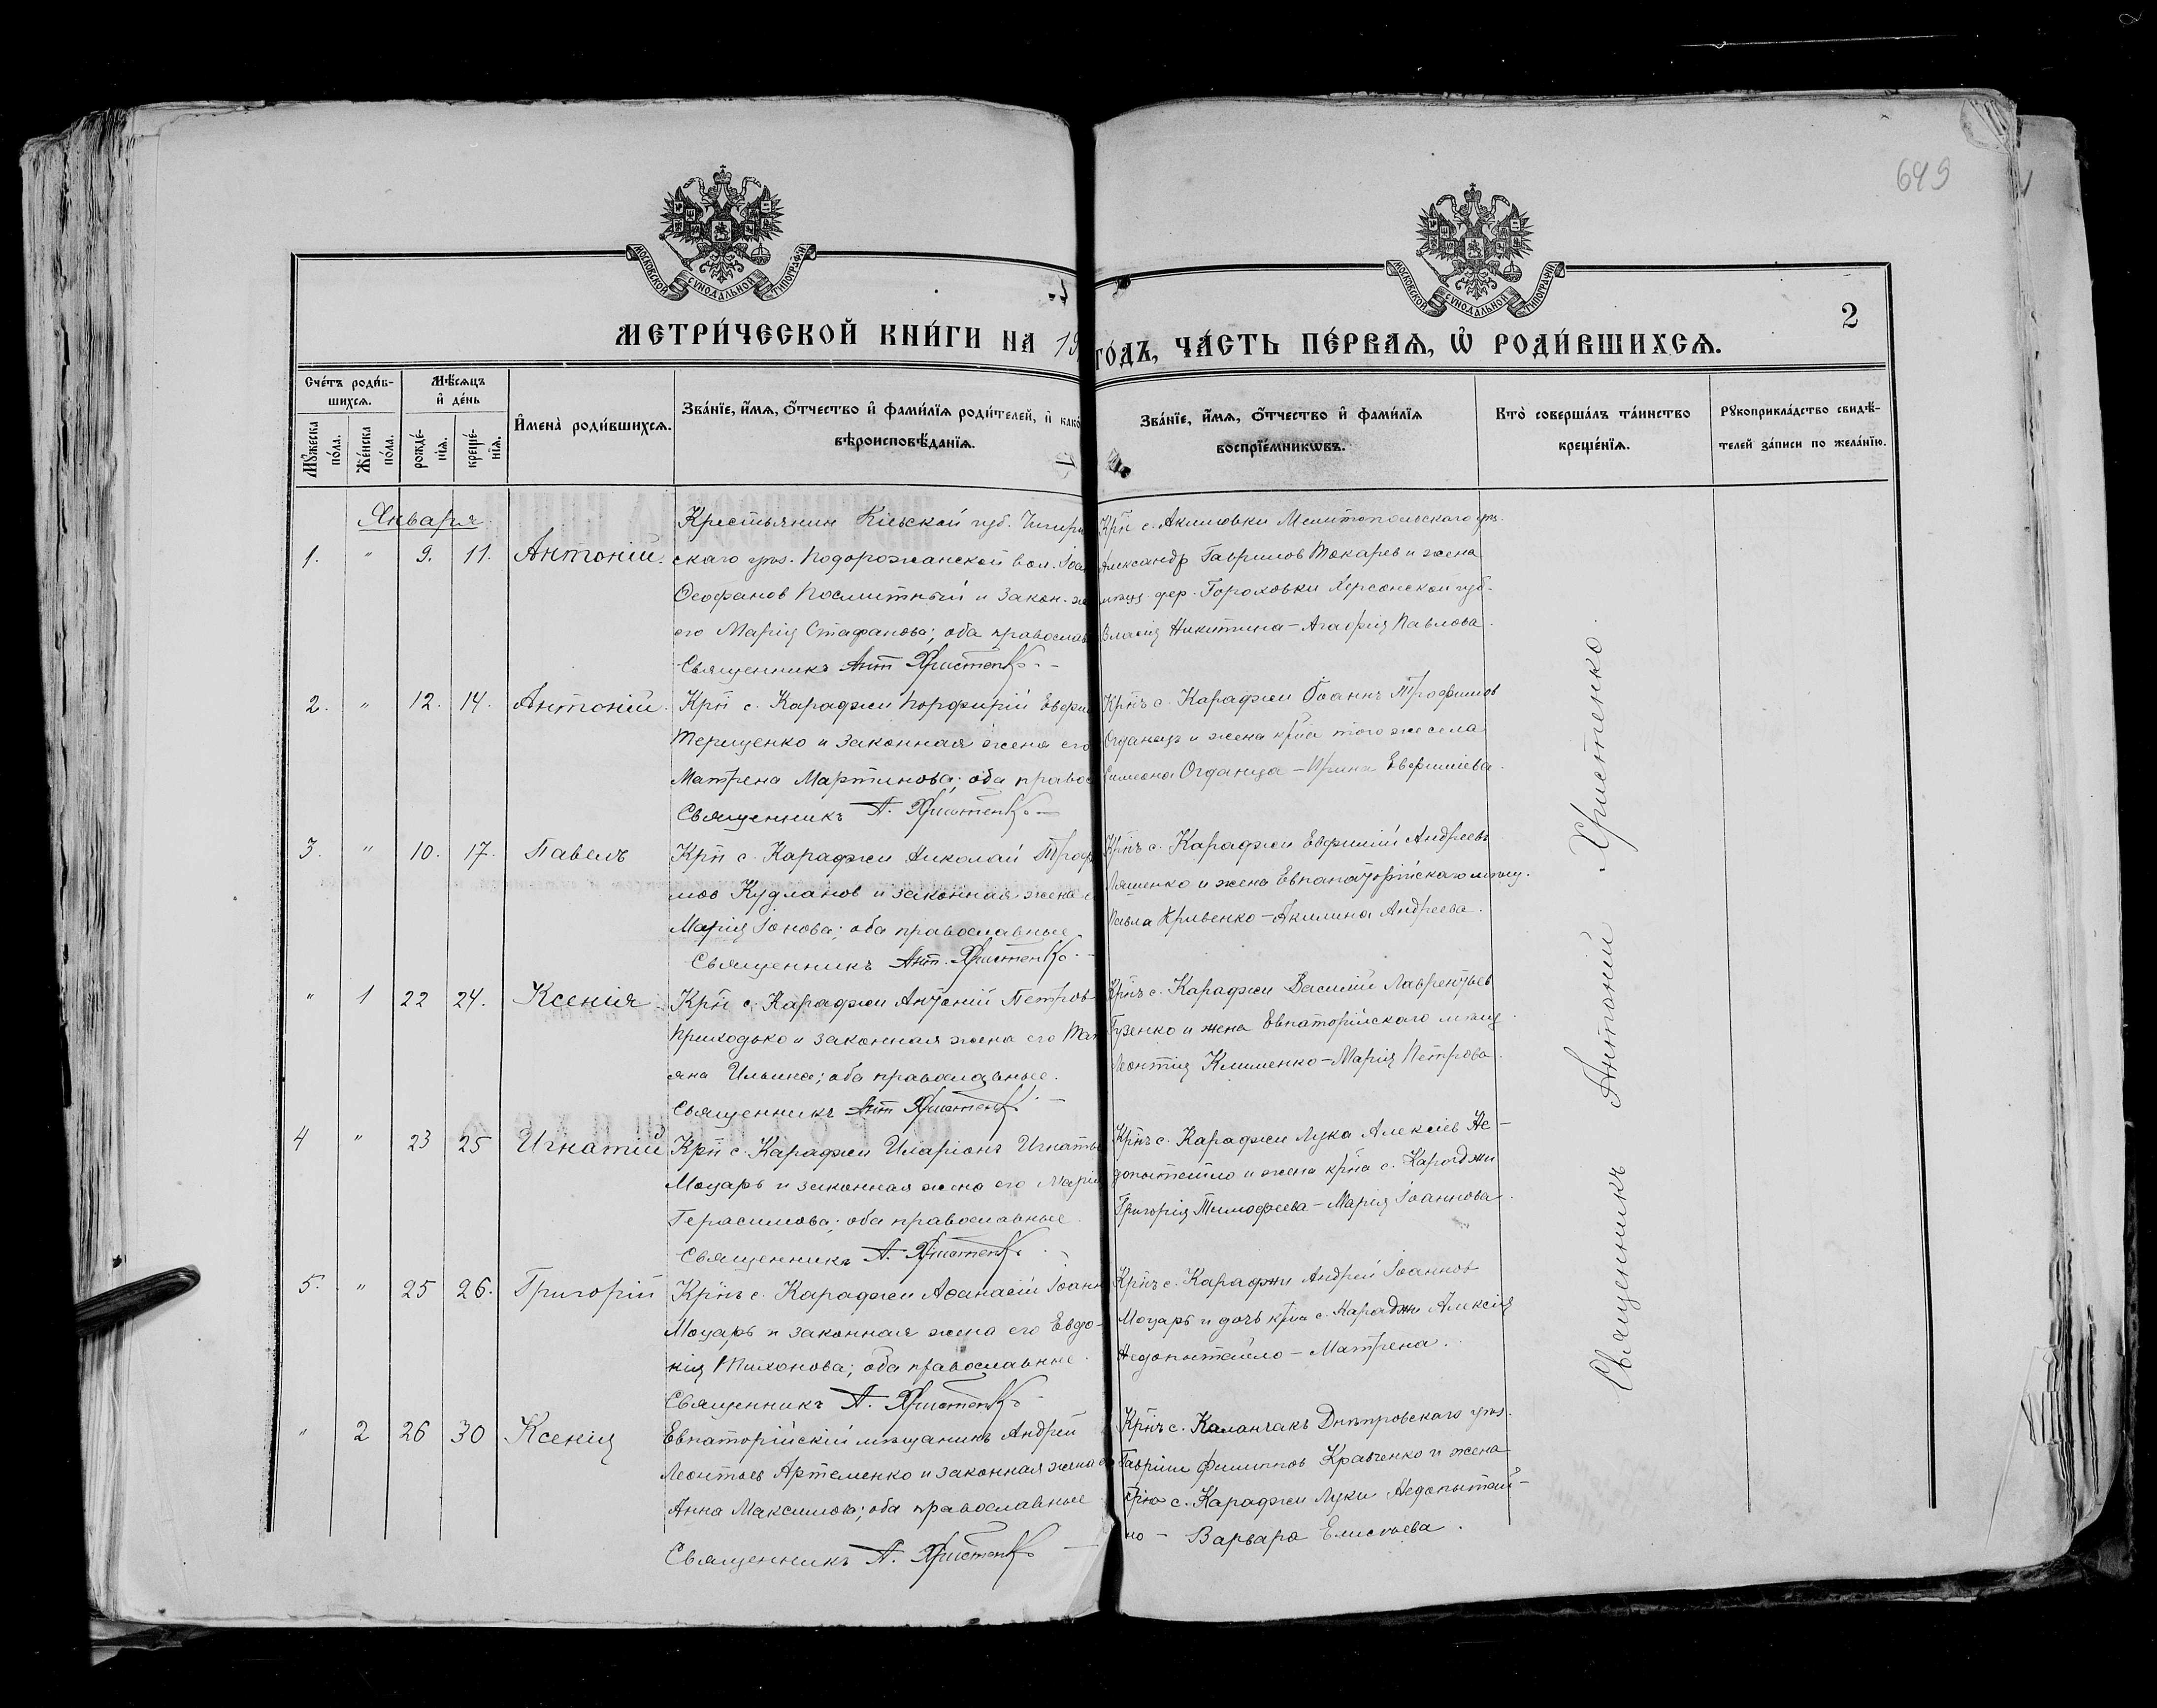 649
МОСКОВСКОЙ СѴНОДАЛЬНОЙ ТИПОГРАФІИ
МОСКОВСКОЙ СѴНОДАЛЬНОЙ ТИПОГРАФІИ
2
МЕТРИ́ЧЕСКОЙ КНИ́ГИ НА 19
ГО́ДЪ, ЧА́СТЬ ПЕ́РВАЯ, Ѡ҆ РОДИ́ВШИХСЯ.
Сче́тъ роди́в-
шихся.
Мѣ́сяцъ
и҆ де́нь
Мꙋ́жеска по́ла.
Же́нска по́ла.
рожде́-
нїя.
креще́-
нїя.
И҆мена̀ роди́вшихся.
Зва́нїе, и҆́мя, ѻ҆́тчество и҆ фами́лїя роди́телей, и҆ како
вѣроисповѣ́данїя.
Зва́нїе, и҆́мя, ѻ҆́тчество и҆ фами́лїя
воспрїе́мникѡвъ.
Кто̀ соверша́лъ та́инство
креще́нїя.
Рꙋкоприкла́дство свидѣ́-
телей за́писи по жела́нїю.
Января
1. " 9. 11. Антоній.
Крестьянин Кіевской губ. Чигири
скаго уѣз. Подорожанской вол. Іоан
Ѳеофанов Посмитный и закон. же
его Марія Стафанова; оба православ
Священникъ Ант Христенко
Крн с. Акимовки Мелитопольскаго уѣз.
Александр Гаврилов Токарев и жена
мѣщ. дер. Гороховки Херсонской губ.
Власія Никитина – Агафія Павлова.
2. " 12. 14. Антоній.
Крн с. Караджи Порфирій Евфи
Терещенко и законная жена его
Матрена Мартинова; оба правос
Священникъ А. Христенко
Крнъ с. Караджи Іоаннъ Трофимов
Огданецъ и жена крна того же села
Симеона Огданца – Ирина Евфиміева.
3. " 10. 17. Павелъ
Крн с. Караджи Николай Троф
мов Кудланов и законная жена е
Марія Іонова; оба православные
Священникъ Ант. Христенко
Крнъ с. Караджи Евфимій Андреевъ
Ляшенко и жена Евпаторійскаго мѣщ.
Павла Кривенко – Акилина Андреева.
" 1 22 24. Ксенія
Крн с. Караджи Антоній Петров
Приходько и законная жена его Тат
яна Ильина; оба православные.
Священникъ Ант Христенко
Крнъ с. Караджи Василий Лаврентьев
Гузенко и жена Евпаторійскаго мѣщ.
Леонтія Клименко – Марія Петрова.
4 " 23 25 Игнатій
Крн с. Караджи Иларіонъ Игнать
Моцарь и законная жена его Марія
Герасимова; оба православные.
Священникъ А. Христенко
Крнъ с. Караджи Лука Алексіев Не-
допытайло и жена крна с. Караджи
Григорія Тимофеева – Марія Іоаннова.
5. " 25 26. Григорій
Крнъ с. Караджи Аѳанасій Іоанн
Моцарь и законная жена его Евдо-
кія Тихонова; оба православные.
Священникъ А. Христенко
Крнъ с. Караджи Андрей Іоаннов
Моцарь и дочь крна с. Караджи Алексія
Недопытайло – Матрена.
" 2 26 30 Ксенія
Евпаторійскій мѣщанинъ Андрей
Леонтьев Артеменко и законная жена е
Анна Максимова; оба православные
Священникъ А. Христенко
Крнъ с. Каланчакъ Днѣпровскаго уѣз.
Гавріил Филиппов Кравченко и жена
крна с. Караджи Луки Недопытай-
ло – Варвара Елисѣева.
Священникъ Антоній Христенко.